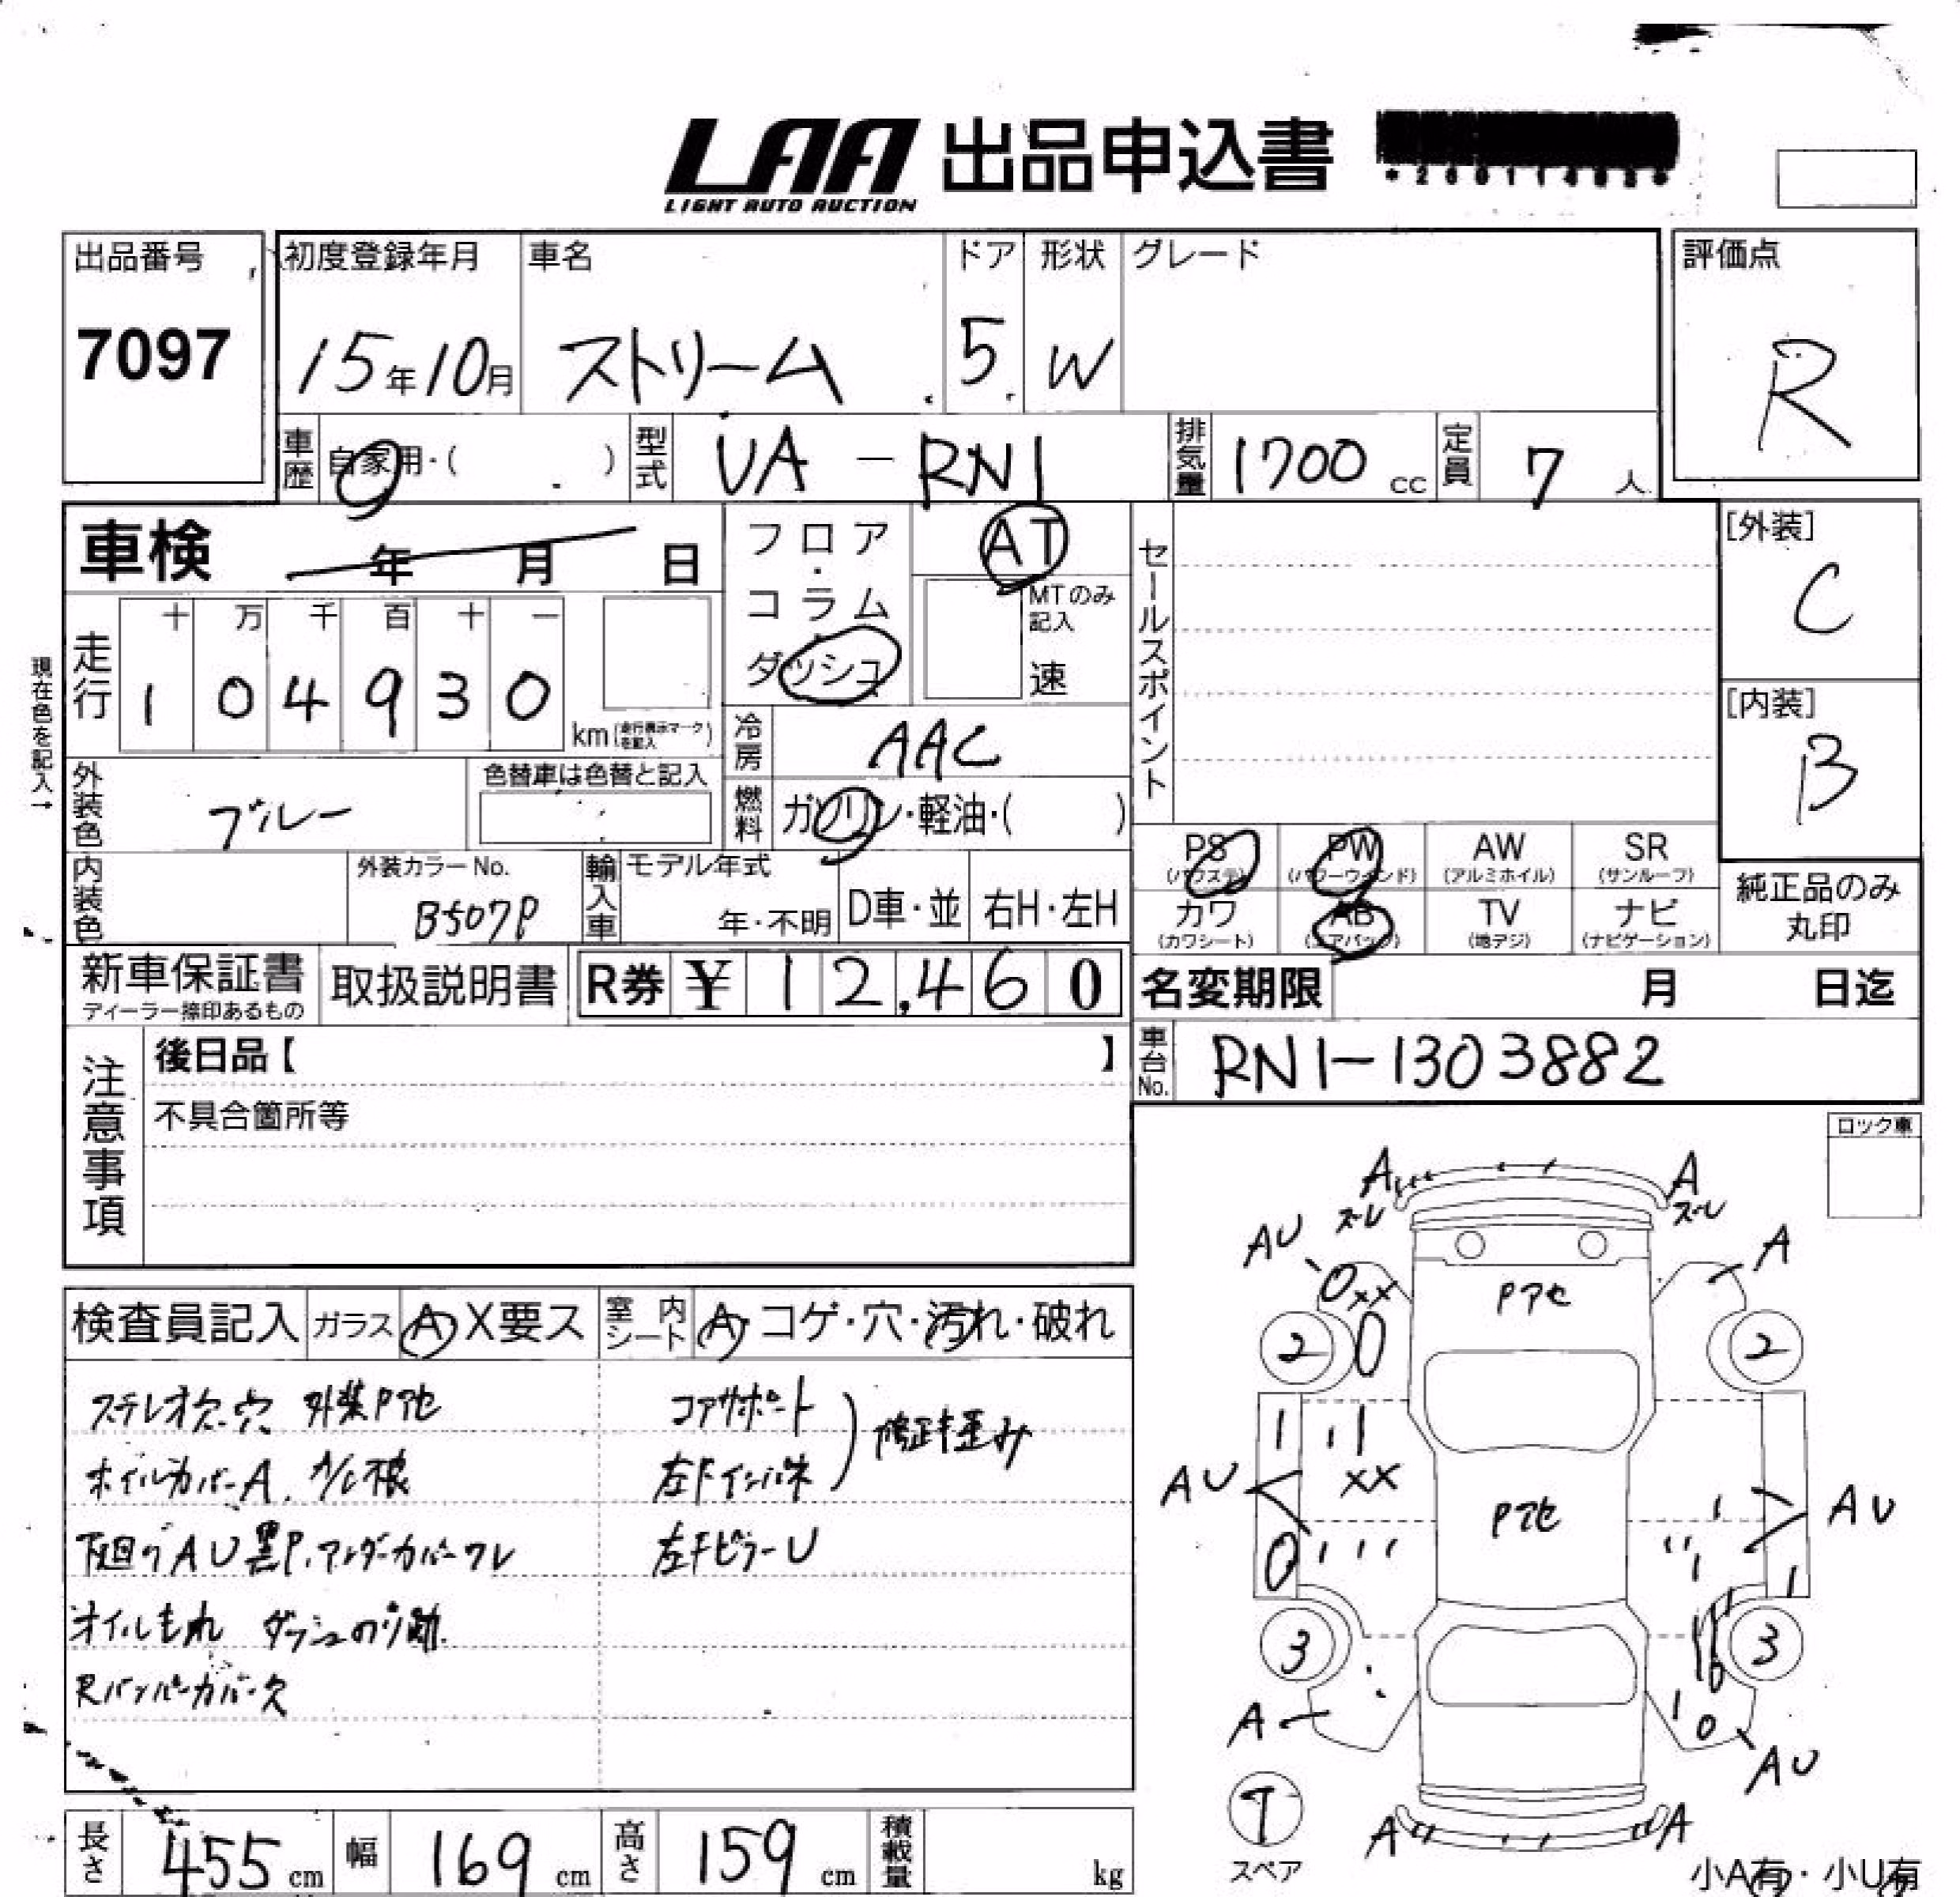 LAA 出品申込書
LIGHT AUTO AUCTION
出品番号
7097
初度登録年月
15年10月
車名
ストリーム
ドア
5
形状
W
グレード
評価点
R
車歴
自家用・( )
型式
UA - RN1
排気量
1700 cc
定員
7 人
車検 年 月 日
フロア・コラム・ダッシュ
AT
MTのみ記入
速
セールスポイント
[外装]
C
[内装]
B
現在色を記入→
走行
十 万 千 百 十 一
1 0 4 9 3 0
km(走行表示マークを記入)
冷房
AAC
外装色
ブルー
色替車は色替と記入
燃料
ガソリン・軽油・( )
内装色
外装カラーNo.
B507P
輸入車
モデル年式
年・不明
D車・並
右H・左H
PS (パワステ)
PW (パワーウインド)
AW (アルミホイル)
SR (サンルーフ)
カワ (カワシート)
AB (エアバック)
TV (地デジ)
ナビ (ナビゲーション)
純正品のみ丸印
新車保証書
ディーラー捺印あるもの
取扱説明書
R券 ¥ 12,460
名変期限 月 日迄
車台No.
RN1-1303882
注意事項
後日品【 】
不具合箇所等
ロック車
検査員記入
ガラス
A X要ス
室内シート
A・コゲ・穴・汚れ・破れ
ステレオ欠.穴 外装Pアセ
ホイルカバーA. A/C根
下廻りAU黒P.アンダーカバーワレ
オイルもれ ダッシュのり跡.
Rバンパーカバー欠
コアサポート
左Fインパネ
修正キ歪み
左FピラーU
A
ズレ
A
ズレ
AU
A
0xx
Pアセ
2
0
2
AU
xx
Pアセ
AU
0
3
3
A
AU
T
スペア
A
A
小A有・小U有
長さ
455 cm
幅
169 cm
高さ
159 cm
積載量
kg